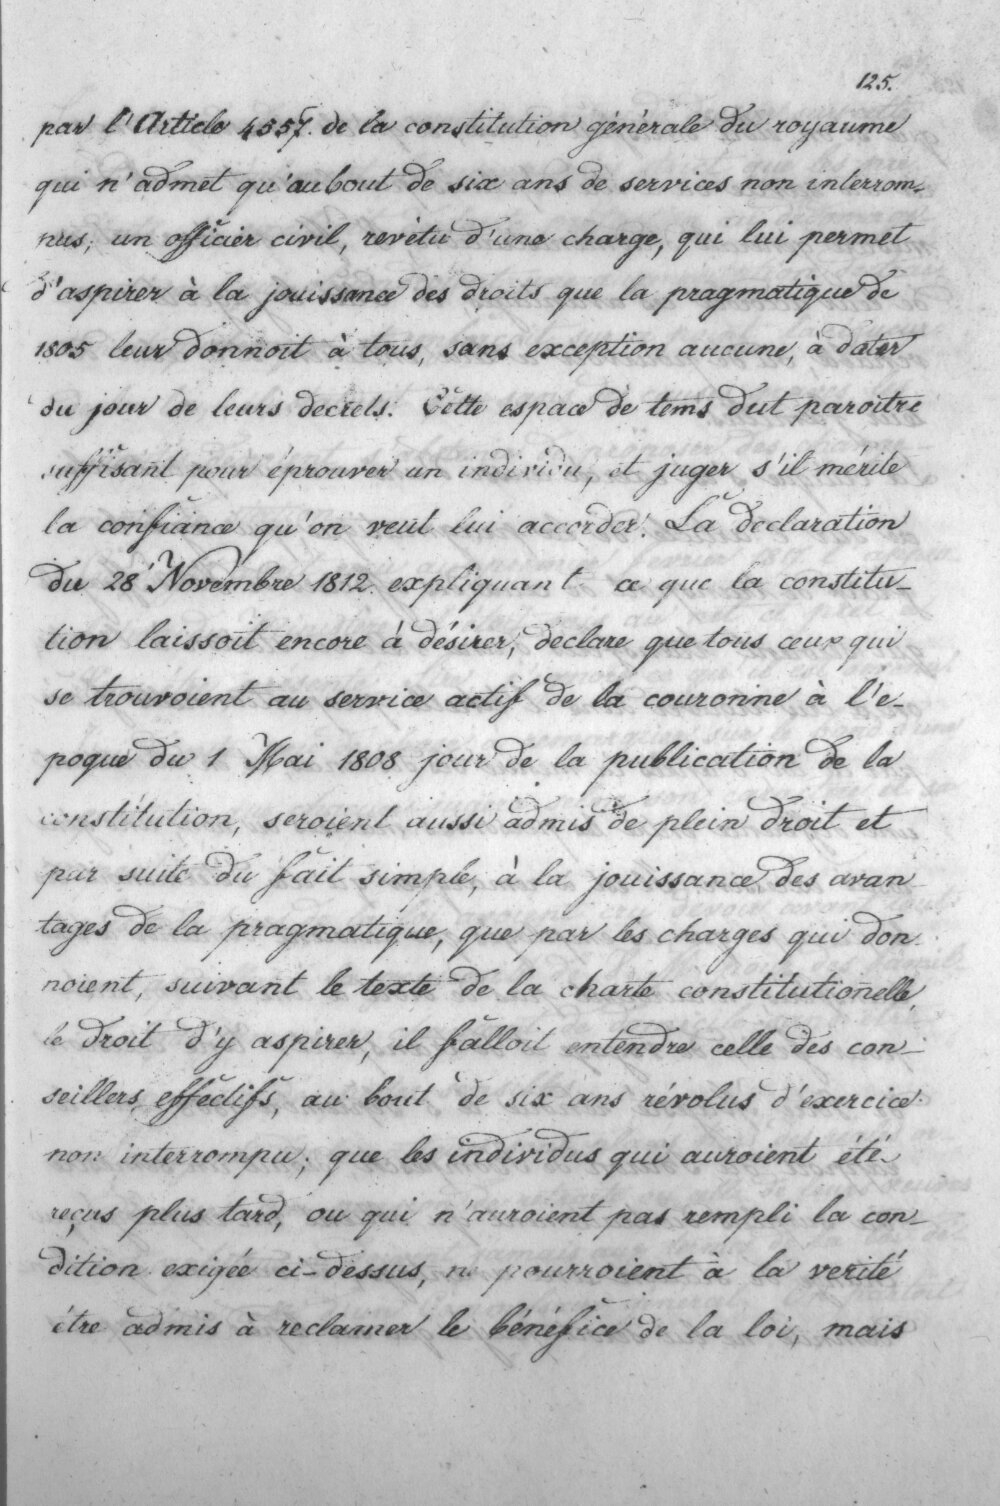 125.
par l'Article 4557. de la constitution générale du royaume
qui n'admet qu'au bout de six ans de services non interrom-
nus, un officier civil, revètu d'une charge, qui lui permet
d'aspirer à la jouissance des droits que la pragmatique de
1805 leur donnoit à tous, sans exception aucune, à dater
du jour de leurs decrets. Cette espace de tems dut paroitre
suffisant pour éprouver un individu, et juger s'il mérite
la confiance qu'on veut lui accorder. La declaration
du 28 Novembre 1812. expliquant ce que la constitu-
tion laissoit encore à désirer, declare que tous ceux qui
se trouvoient au service actif de la couronne à l'e-
poque du 1 Mai 1808 jour de la publication de la
constitution, seroient aussi admis de plein droit et
par suite du fait simple, à la jouissance des avan-
tages de la pragmatique, que par les charges qui don-
noient, suivant le texte de la charte constitutionelle,
le droit d'y aspirer, il falloit entendre celle des con-
seillers effectifs, au bout de six ans révolus d'exercice
non interrompu; que les individus qui auroient été
reçus plus tard, ou qui n'auroient pas rempli la con-
dition exigée ci-dessus, ne pourroient à la verité
être admis à reclamer le bénéfice de la loi, mais